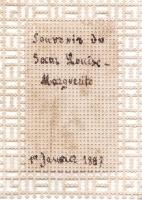 Souvenir de
Sœur Louise-
Marguerite
1er Janvier 1887